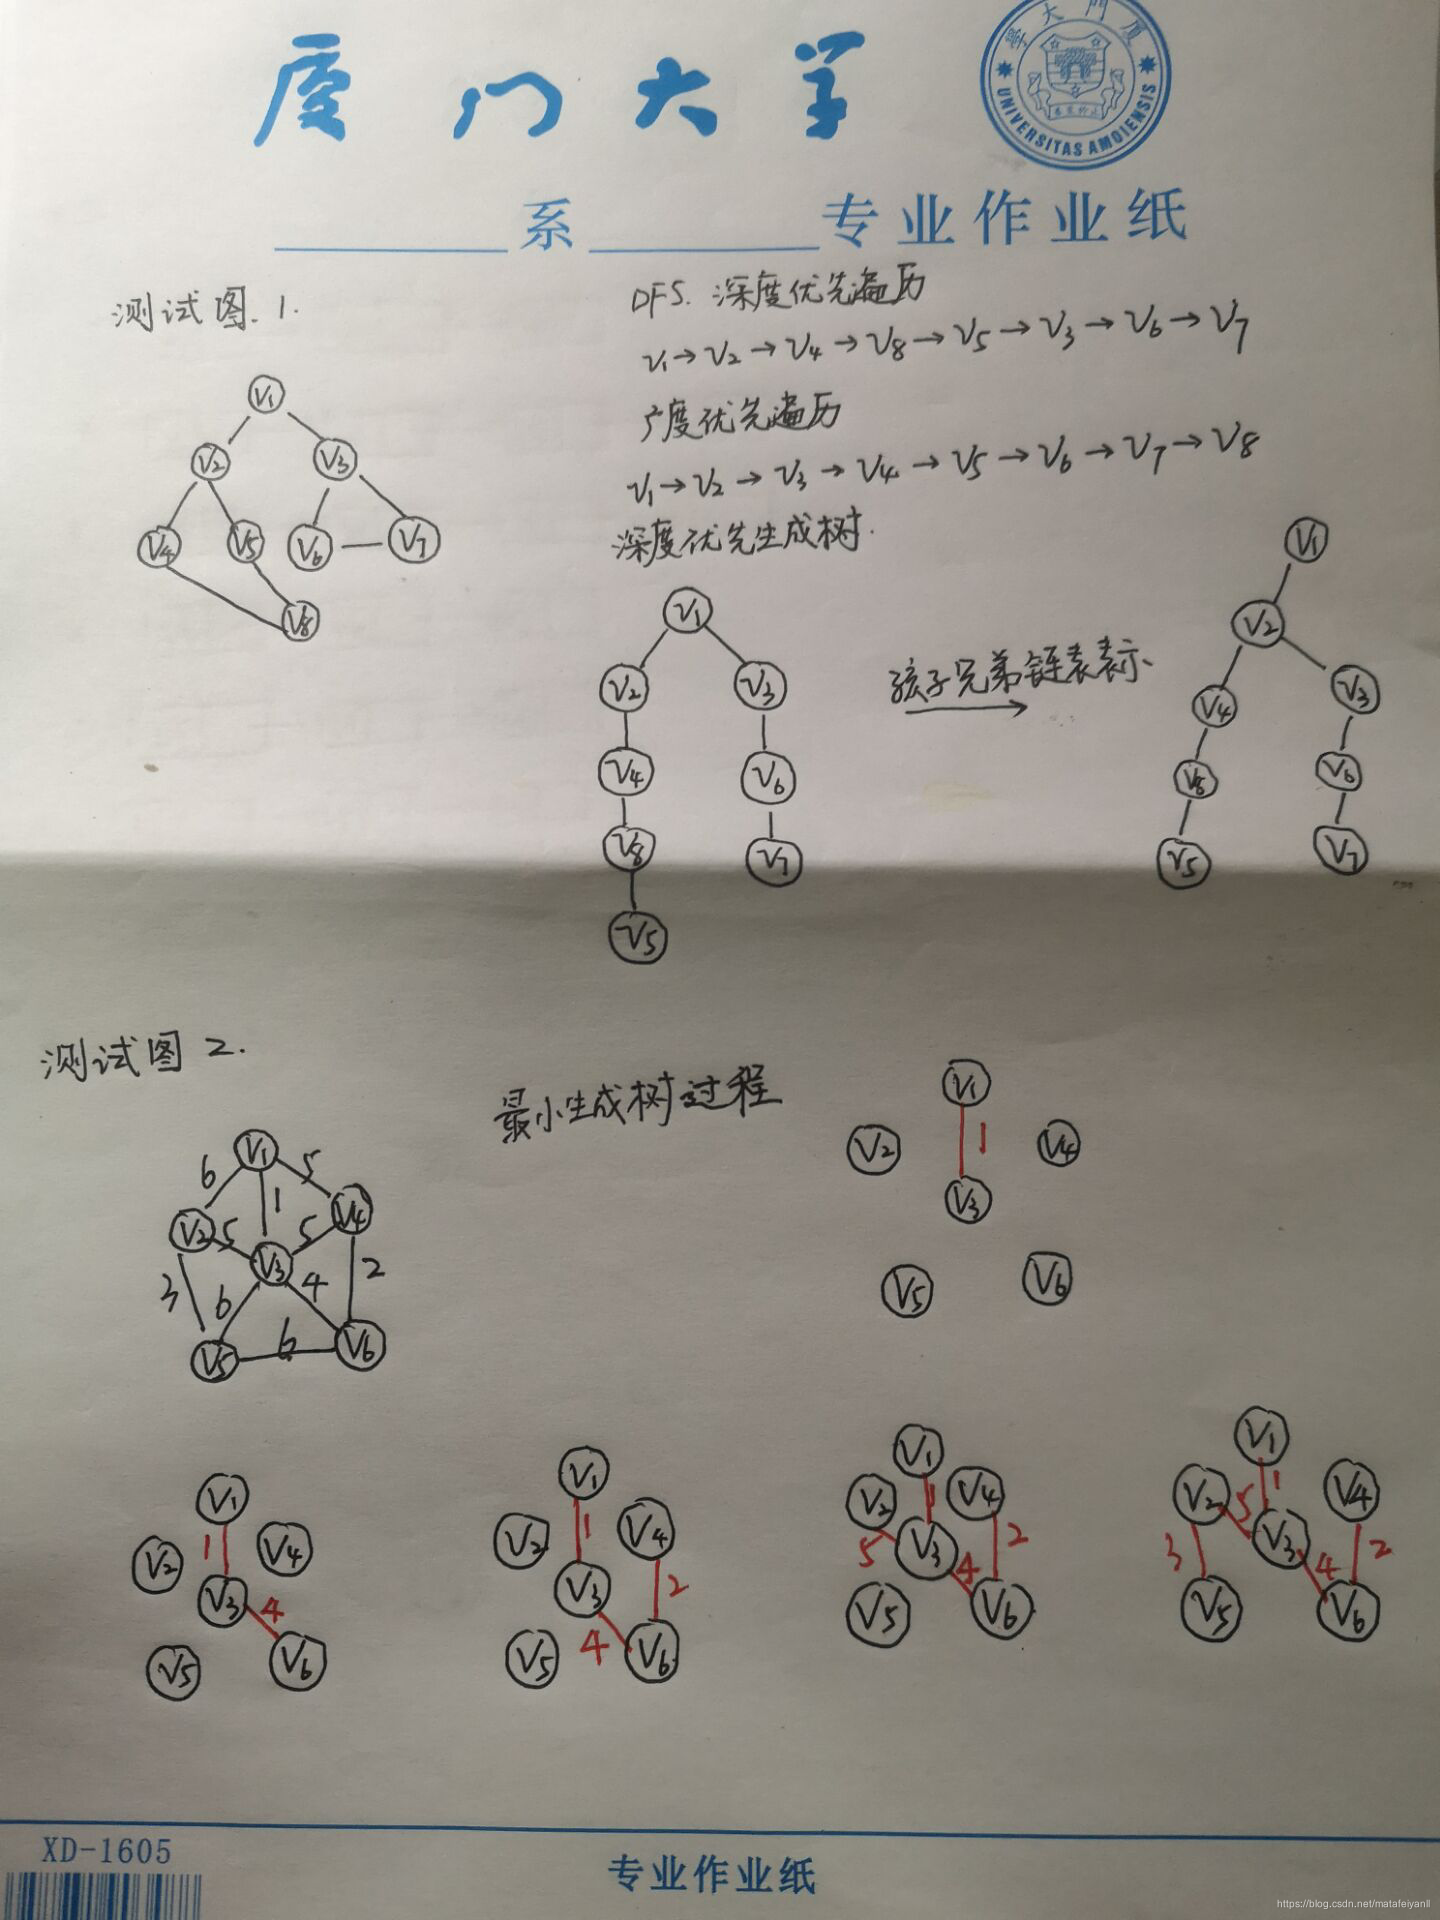 厦门大学
厦門大學
UNIVERSITAS AMOIENSIS
系 专业作业纸
测试图.1.
DFS. 深度优先遍历
V1→V2→V4→V8→V5→V3→V6→V7
广度优先遍历
V1→V2→V3→V4→V5→V6→V7→V8
深度优先生成树.
V1
V2 V3
V4 V5 V6 V7
V8
V1
V2 V3
V4 V6
V8 V7
V5
孩子兄弟链表表示、
V1
V2
V4 V3
V8 V6
V5 V7
测试图 2.
最小生成树过程
V1
6 5
1
V2 5 5 V4
V3
3 6 4 2
V5 6 V6
V1
V2 1 V4
V3
V5 V6
V1
V2 1 V4
V3
4
V5 V6
V1
V2 1 V4
V3 2
V5 4 V6
V1
V2 1 V4
5 V3 2
4
V5 V6
V1
V2 5 1 V4
V3
3 4 2
V5 V6
XD-1605
专业作业纸
https://blog.csdn.net/matafeiyanll